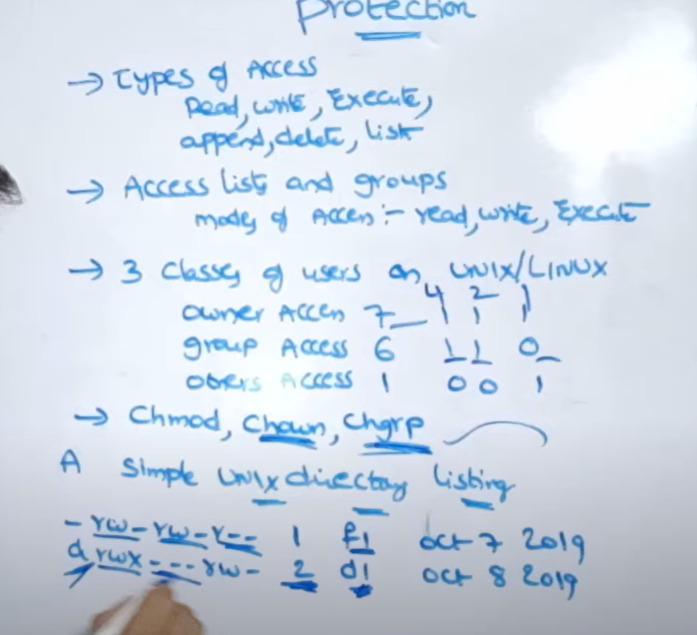 Protection
→ Types of Access
Read, write, Execute,
append, delete, list
→ Access lists and groups
modes of Access :- read, write, Execute
→ 3 classes of users on UNIX/LINUX
4 2 1
owner Access 7 1 1 1
group Access 6 1 1 0
others Access 1 0 0 1
→ Chmod, Chown, Chgrp
A simple UNIX directory listing
- rw- rw- r-- 1 f1 oct 7 2019
d rwx --- rw- 2 d1 oct 8 2019